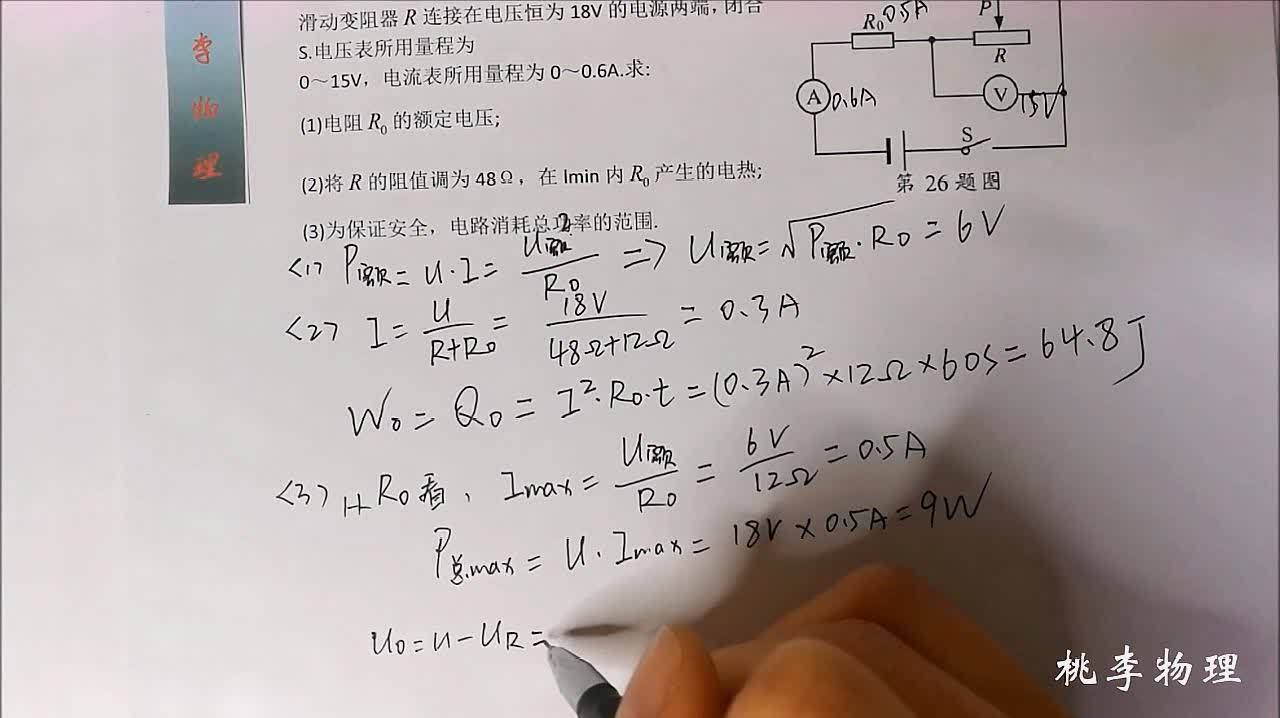 李
物
理
滑动变阻器 R 连接在电压恒为 18V 的电源两端，闭合
S.电压表所用量程为
0～15V，电流表所用量程为 0～0.6A.求:
(1)电阻 R₀ 的额定电压;
(2)将 R 的阻值调为 48Ω，在 lmin 内 R₀ 产生的电热;
(3)为保证安全，电路消耗总功率的范围.
R₀ 0.5A
P
R
A 0.6A
V 15V
S
第 26 题图
<1> P额 = U·I = U额²/R₀ => U额 = √P额·R₀ = 6V
<2> I = U/R+R₀ = 18V/48Ω+12Ω = 0.3A
W₀ = Q₀ = I²·R₀·t = (0.3A)²×12Ω×60S = 64.8J
<3> 从R₀看, Imax = U额/R₀ = 6V/12Ω = 0.5A
P总max = U·Imax = 18V×0.5A = 9W
U₀ = U - UR =
桃李物理